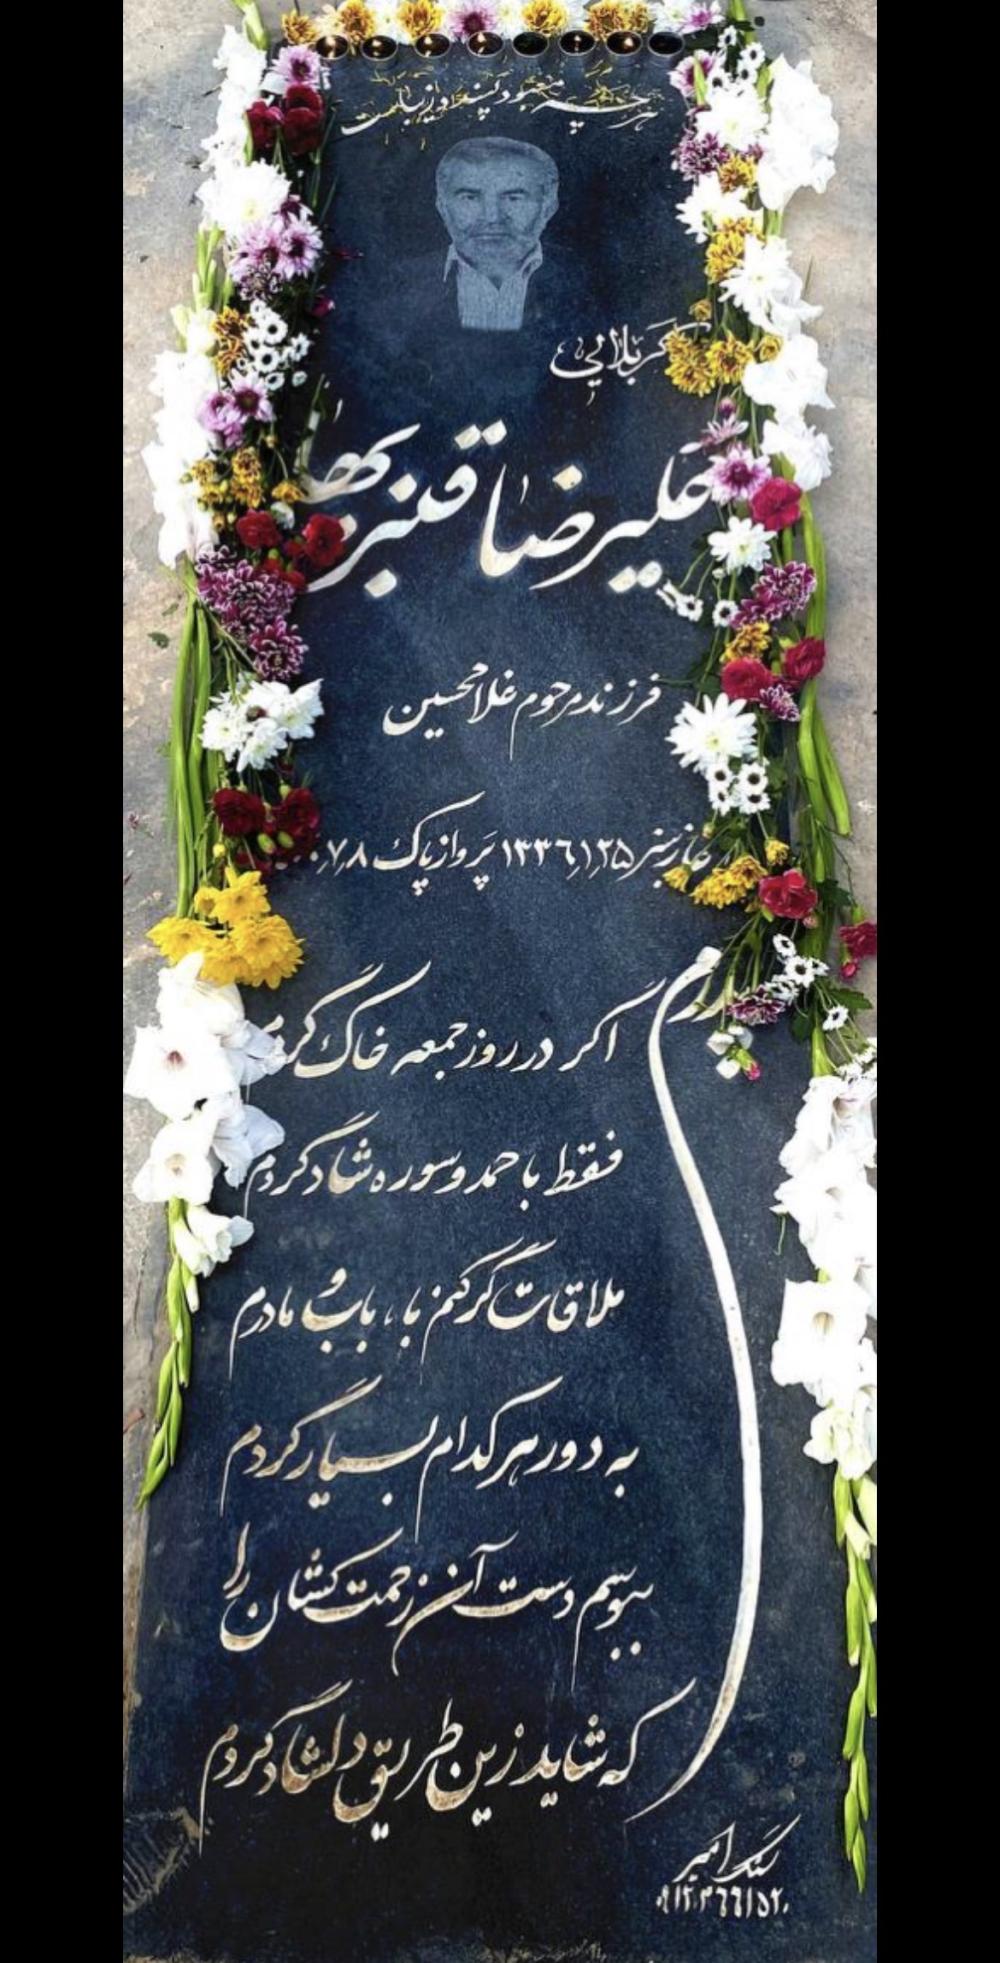 هر چه معبود پسندد زیباست
کربلایی
علیرضا قنبر
فرزند مرحوم غلامحسین
آغاز سبز ۱۳۳۶٫۱٫۲۵ پرواز پاک ۷٫۸
پدرم
اگر در روز جمعه خاک گردم
فقط با حمد و سوره شاد گردم
ملاقات گر کنم با، باب و مادرم
به دور هر کدام بسیار گردم
ببوسم دست آن زحمت کشان را
که شاید زین طریق دلشاد گردم
سنگ امیر
۰۹۱۲۰۳۶۶۱۵۲۰